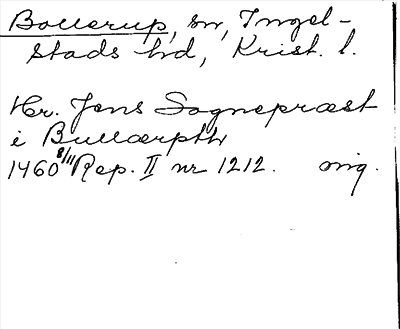 Bollerup, sn, Ingel-
stads hd, Krist. l.
Hr. Jens Sognepræst
i Bullærpthr
1460 8/11 Rep. II nr 1212. mig.